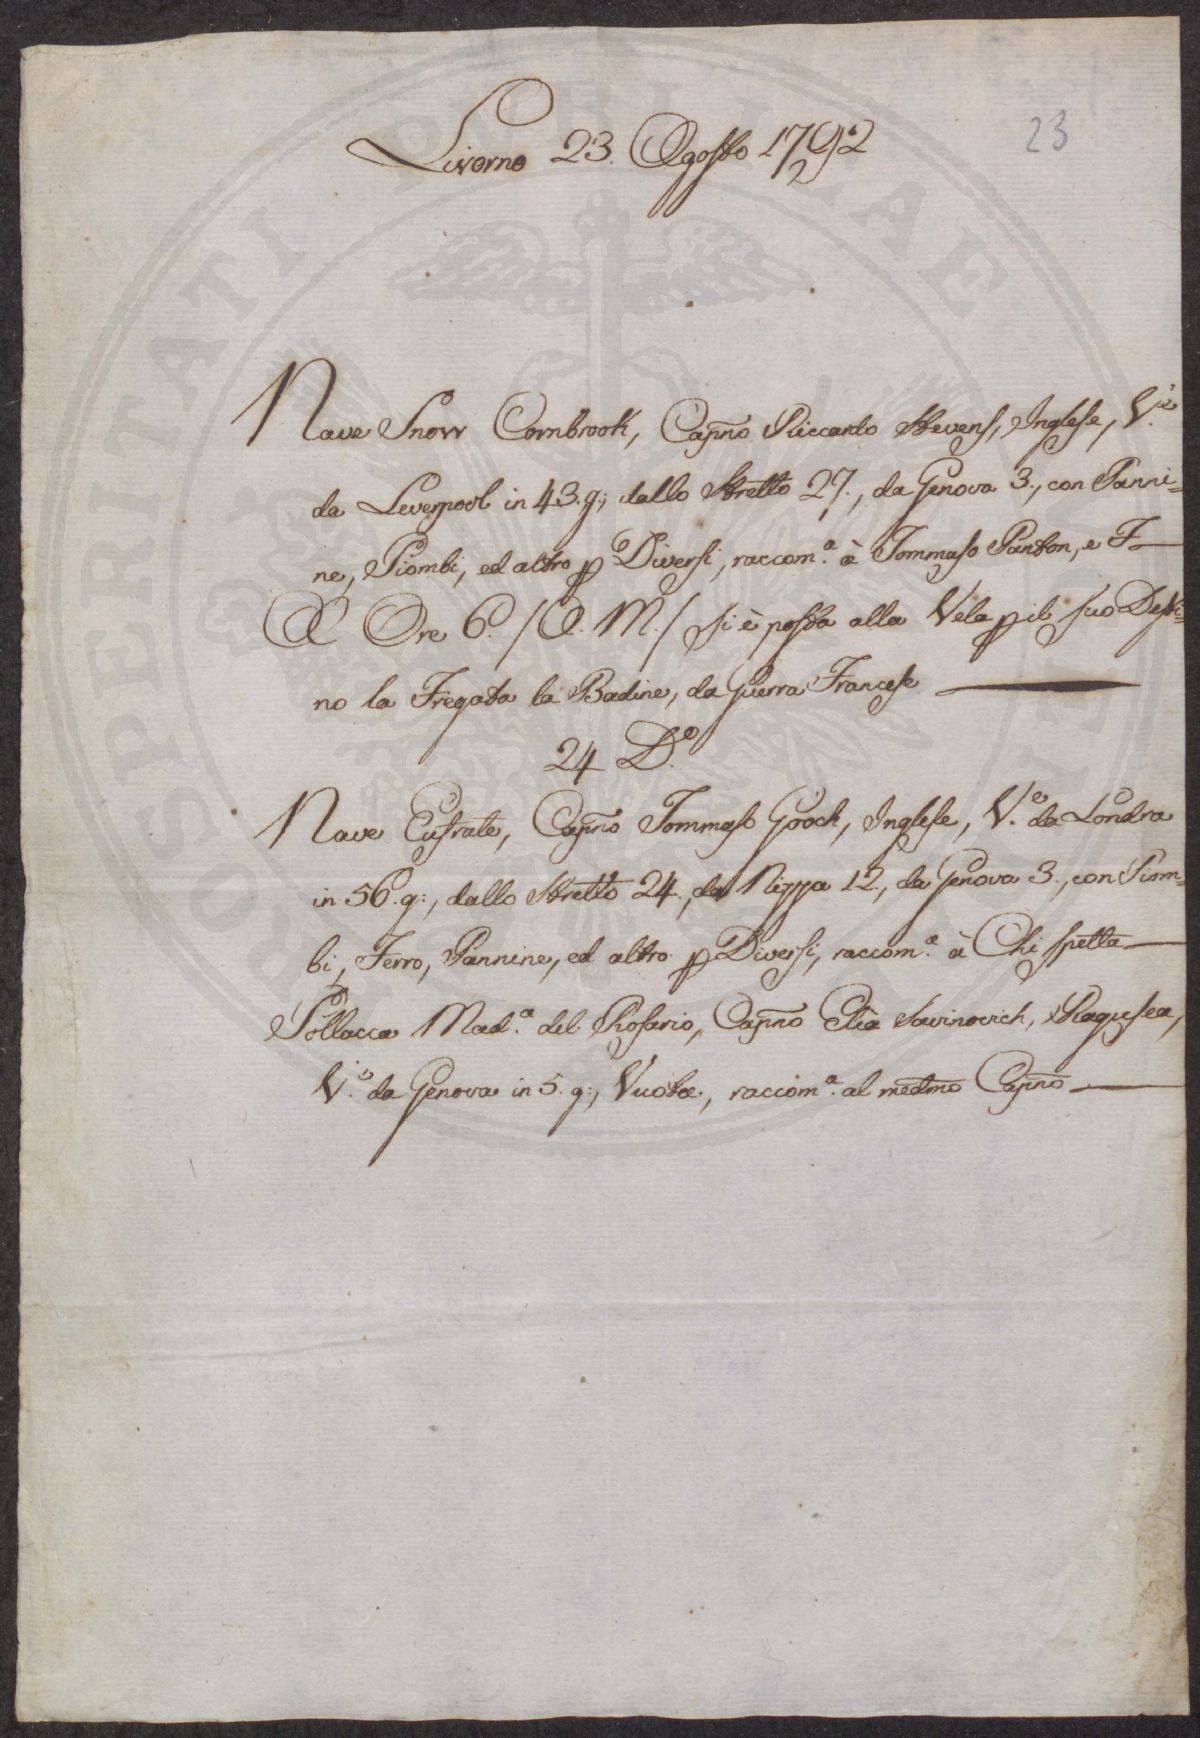 Livorno 23. Agosto 1792
23
Nave Snovv Cornbrook, Capno Riccardo Stevens, Inglese, V.e
da Leverpool in 43. g.; dallo Stretto 27., da Genova 3., con Panni=
ne, Piombi, ed altro p Diversi, raccom.a à Tommaso Panton, e F.
A Ore 6. /A. M./ si è posta alla Vela p il suo Desti=
no la Fregata la Badine, da Guerra Francese
24 D.o
Nave Eufrate, Capno Tommaso Gooch, Inglese, V.e da Londra
in 56. g:, dallo Stretto 24., da Nizza 12., da Genova 3., con Piom=
bi, Ferro, Pannine, ed altro p Diversi, raccom.a à Chi spetta
Pollacca Mad.a del Rosario, Capno Elia Savinovich, Ragusea,
V.e da Genova in 5. g:, Vuota, raccom.a al medmo Capno